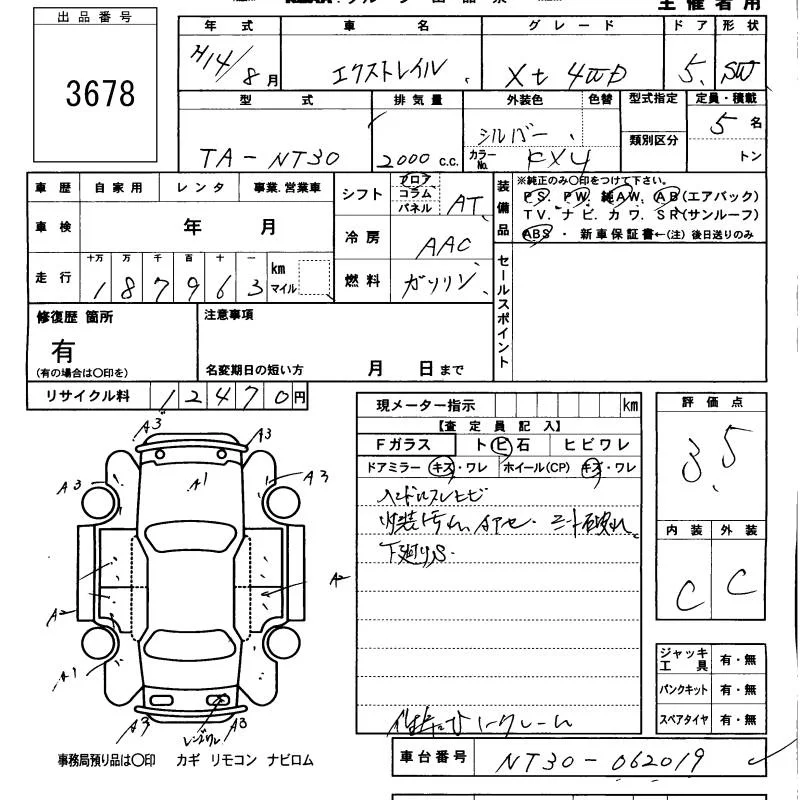 出品番号
3678
主催者用
年式 車名 グレード ドア 形状
H14/8月 エクストレイル Xt 4WD 5 SW
型式 排気量 外装色 色替 型式指定 定員・積載
類別区分
TA-NT30 2000 c.c. シルバー カラーNo. KX4 5名
トン
車歴 自家用 レンタ 事業.営業車
車検 年 月
走行 十万 万 千 百 十 一 km マイル
1 8 7 9 6 3
シフト フロア コラム パネル AT
冷房 AAC
燃料 ガソリン
装備品
※純正のみ○印をつけて下さい。
PS. PW. 純AW. AB(エアバック)
TV. ナビ. カワ. SR(サンルーフ)
ABS ・ 新車保証書←(注) 後日送りのみ
セールスポイント
修復歴 箇所
有
(有の場合は○印を)
注意事項
名変期日の短い方 月 日まで
リサイクル料 1 2 4 7 0 円
現メーター指示 km
【査定員記入】
Fガラス トビ石 ヒビワレ
ドアミラー キズ・ワレ ホイール(CP) キズ・ワレ
下廻りS.
評価点
3.5
内装 外装
C C
ジャッキ工具 有・無
パンクキット 有・無
スペアタイヤ 有・無
A3 A3
A1
A3 A3
A2 A2
A1
A3 A3
事務局預り品は○印 カギ リモコン ナビロム
車台番号 NT30-062019